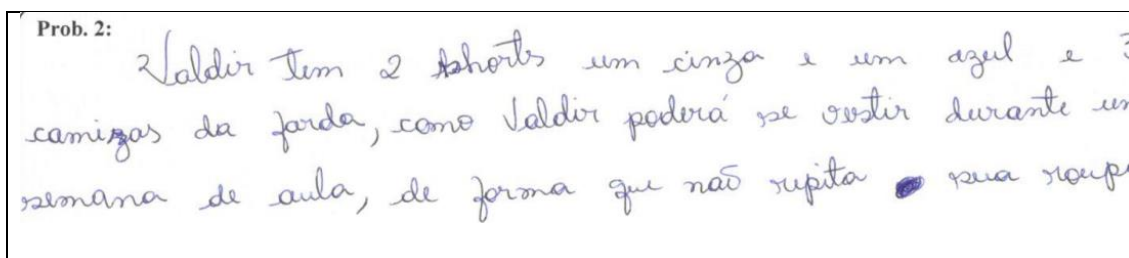 Prob. 2:
Valdir tem 2 shorts um cinza e um azul e 3
camizas da farda, como Valdir poderá se vestir durante um
semana de aula, de forma que não repita sua roup